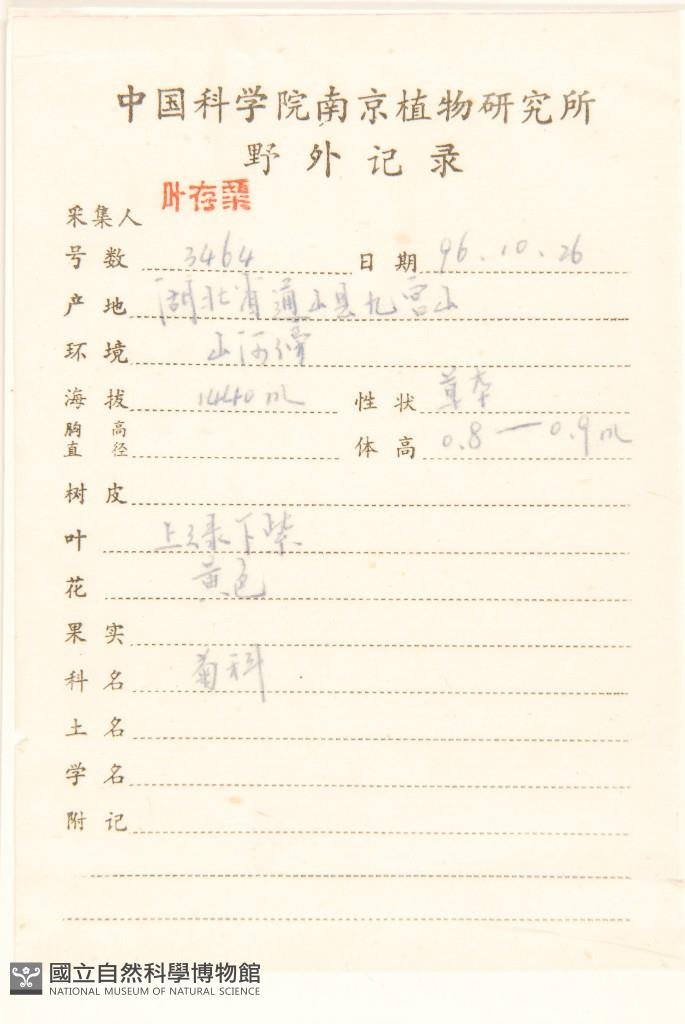 中国科学院南京植物研究所
野外记录
采集人 叶存粟
号数 3464 日期 96.10.26
产地 湖北省通山县九宫山
环境 山沟
海拔 1440m 性状 草本
胸高直径 体高 0.8—0.9m
树皮
叶 上绿下紫
花 黄色
果实
科名 菊科
土名
学名
附记
國立自然科學博物館
NATIONAL MUSEUM OF NATURAL SCIENCE